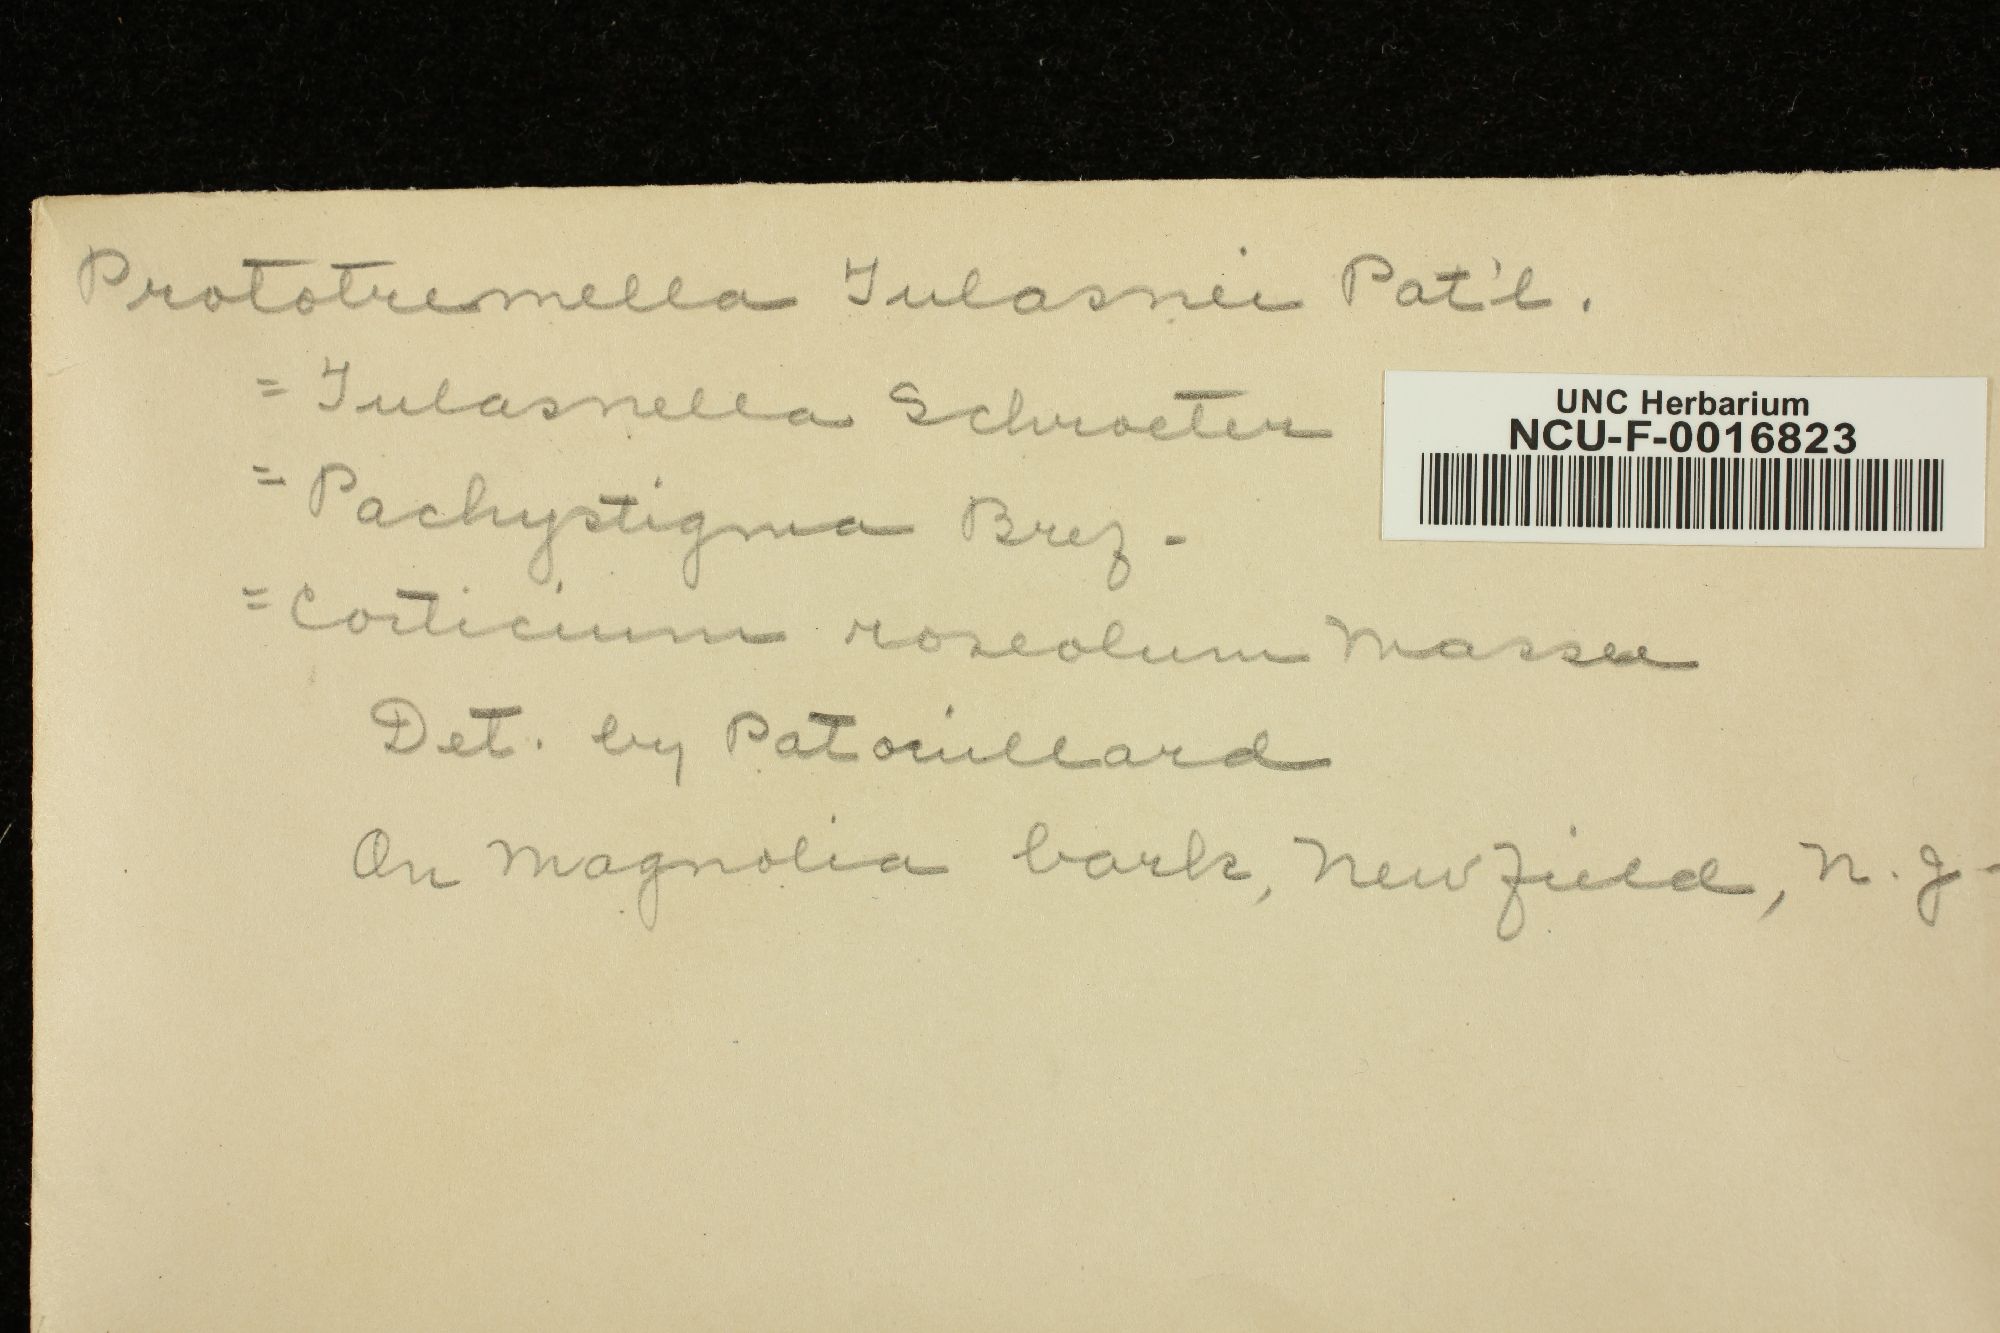 Prototremella Tulasnei Pat'l.
= Tulasnella Schroeter
= Pachystigma Brez.
= Corticium roseolum Massee
Det. by Patouillard
On Magnolia bark, Newfield, N.J.
UNC Herbarium
NCU-F-0016823